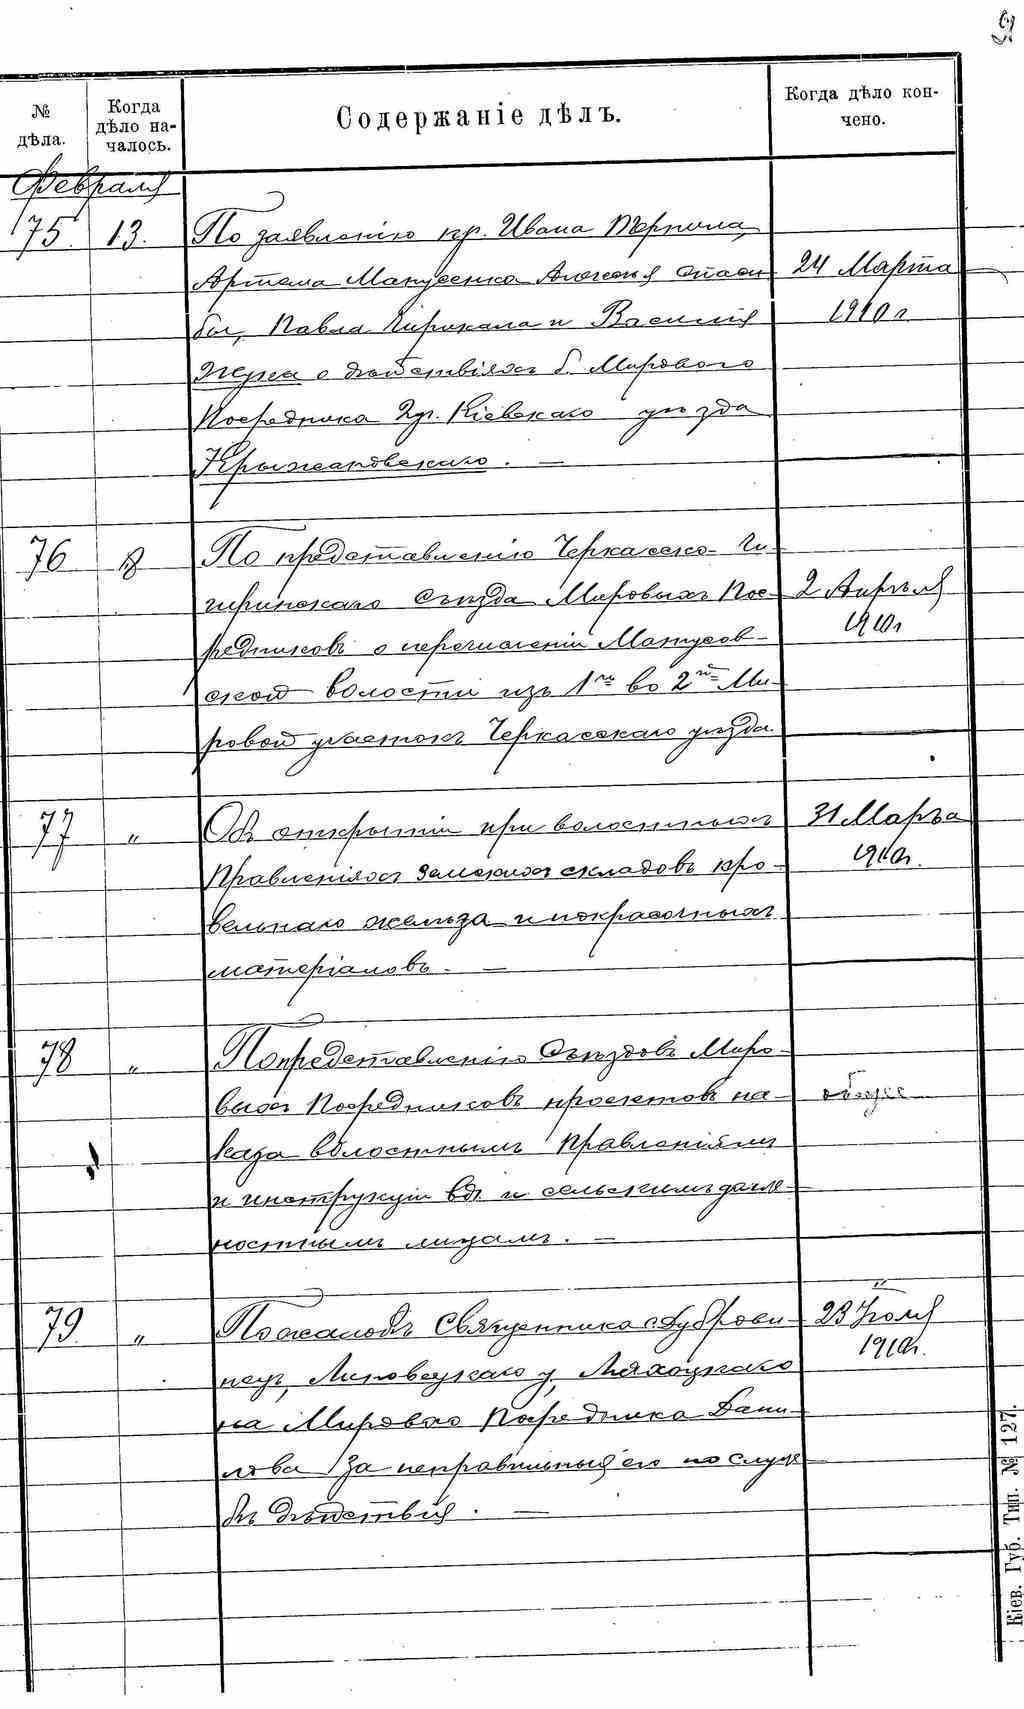 9
№ дѣла.
Когда дѣло на-
чалось.
Содержаніе дѣлъ.
Когда дѣло кон-
чено.
Февраля
75. 13. По заявленію кр. Ивана
Артема Манусенка Алексѣя
24 Марта
бы, Павла и Василія
1910 г
Жука о дѣйствіяхъ б. Мирового
Посредника 2 уч. Кіевскаго уѣзда
Крыжановскаго. —
76 18 По представленію Черкасско-Чи-
гиринскаго Съѣзда Мировыхъ Пос-
2 Апрѣля
редниковъ о перечисленіи Матусов-
1910 г
ской волости изъ 1го во 2й Ми-
ровой участокъ Черкасскаго уѣзда.
77 „ Объ открытіи при волостныхъ
31 Марта
Правленіяхъ земскихъ складовъ кро-
1910 г.
вельнаго желѣза и покрасочныхъ
матеріаловъ. —
78 „ По представленію Съѣздовъ Миро-
выхъ Посредниковъ проектовъ на-
общее
каза волостнымъ Правленіямъ
и инструкціи вол. и сельскимъ долж-
ностнымъ лицамъ. —
79. „ По жалобѣ Священника с. Дуброви-
23 Іюля
нец, Липовецкаго у, Ляхоцкаго
1910 г.
на Мирового Посредника Дани-
лова за неправильныя его по служ-
бѣ дѣйствія. —
Кіев. Губ. Тип. № 127.